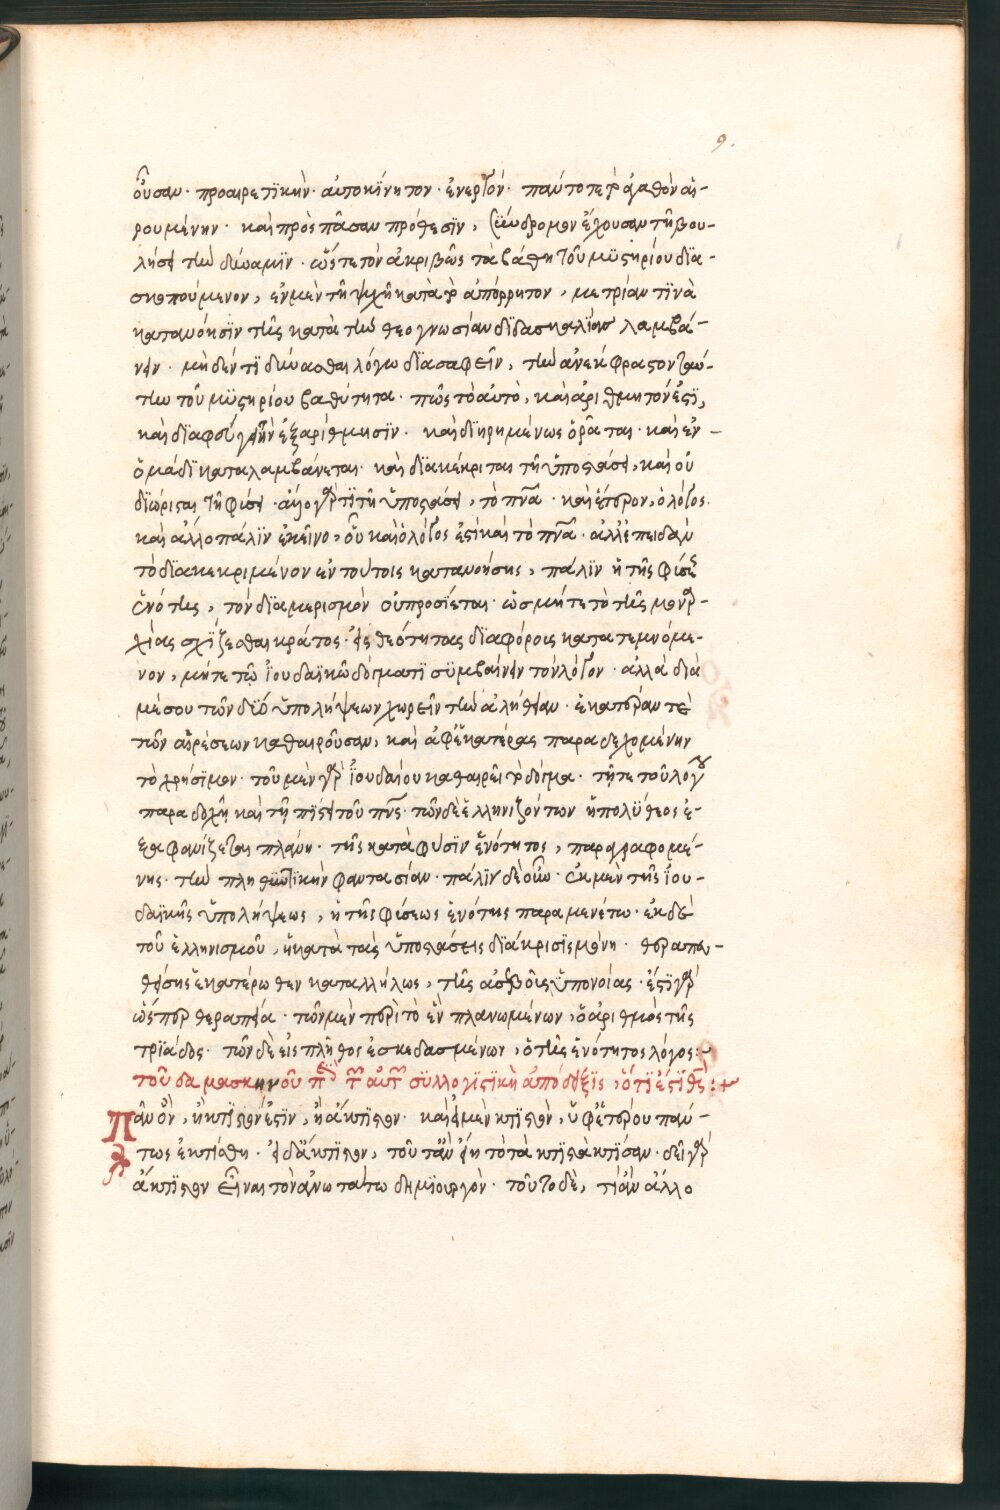 9.
οὖσαν· προαιρετϊκὴν· αὐτοκίνητον· ἐνεργὸν· πάντοτε τὸ ἀγαθὸν αἱ-
ρουμένην· καὶ πρὸς πᾶσαν πρόθεσϊν, σύνδρομον ἔχουσαν τῆ βου-
λήσει τὴν δύναμϊν· ὥστε τὸν ἀκριβῶς τὰ βάθη τοῦ μϋστηρίου δϊα-
σκοπούμενον, ἐν μὲν τῆ ψυχῆ κατὰ τὸ ἀπόρρητον, μετρίαν τϊνὰ
κατανόησϊν τῆς κατὰ τὴν θεογνωσίαν δϊδασκαλίας λαμβά-
νειν· μὴ δέν τϊ δύνασθαι λόγω δϊασαφεῖν, τὴν ἀνέκφραστον ταύ-
την τοῦ μϋστηρίου βαθύτητα· πῶς τὸ αὐτὸ, καὶ ἀριθμητόν ἐστϊ,
καὶ δϊαφεύγει τὴν ἐξαρίθμησϊν· καὶ δϊηρημένως ὁρᾶται· καὶ ἐν
ὁμάδϊ καταλαμβάνεται· καὶ δϊακέκριται τῆ ὑποστάσει, καὶ οὐ
δϊώρισται τῆ φύσει· ἄλλο γάρ τϊ τῆ ὑποστάσει, τὸ πνᾶ· καὶ ἕτερον, ὁ λόγος·
καὶ ἄλλο πάλϊν ἐκεῖνο, οὗ καὶ ὁ λόγος ἐστὶ καὶ τὸ πνᾶ· ἀλλ' ἐπειδὰν
τὸ δϊακεκριμένον ἐν τούτοις κατανοήσης, πάλϊν ἡ τῆς φύσεως
ἑνότης, τὸν δϊαμερισμὸν οὐ προσίεται· ὡς μήτε τὸ τῆς μοναρ-
χίας σχίζεσθαι κράτος· εἰς θεότητας δϊαφόροις κατατεμνόμε-
νον, μήτε τῶ ἰουδαϊκῶ δόγματϊ σϋμβαίνειν τὸν λόγον· ἀλλὰ δϊὰ
μέσου τῶν δύο ὑπολήψεων χωρεῖν τὴν ἀλήθειαν· ἑκατέραν τὲ
τῶν αἱρέσεων καθαιροῦσαν, καὶ ἀφ' ἑκατέρας παραδεχομένην
τὸ χρήσϊμον· τοῦ μὲν γὰρ ἰουδαίου καθαιρεῖται τὸ δόγμα· τῆ τε τοῦ λόγου
παραδοχῆ καὶ τῆ πίστει τοῦ πνς· τῶν δὲ ἑλληνιζόντων ἡ πολύθεος ἐ-
ξαφανίζεται πλάνη· τῆς κατὰ φύσϊν ἑνότητος, παραγραφομέ-
νης· τὴν πληθυντϊκὴν φαντασίαν· πάλϊν δὲ οὖν· ἐκ μὲν τῆς ἰου-
δαϊκῆς ὑπολήψεως, ἡ τῆς φύσεως ἑνότης παραμενέτω· ἐκ δὲ
τοῦ ἑλληνισμοῦ, ἡ κατὰ τὰς ὑποστάσεις δϊάκρισϊς μόνη· θεραπευ-
θείσης ἑκατέρωθεν καταλλήλως, τῆς ἀσεβοῦς ὑπονοίας· ἔστϊ γὰρ
ὥσπερ θεραπεία· τῶν μὲν περὶ τὸ ἓν πλανωμένων, ὁ ἀριθμὸς τῆς
τρϊάδος· τῶν δὲ εἰς πλῆθος ἐσκεδασμένων, ὁ τῆς ἑνότητος λόγος:-
τοῦ δαμασκηνοῦ περὶ τοῦ αὐτοῦ σϋλλογϊστϊκὴ ἀπόδειξϊς, ὅτϊ ἐστὶ θς:+
Πᾶν ὂν, ἢ κτϊστόν ἐστϊν, ἢ ἄκτϊστον· καὶ εἰ μὲν κτϊστὸν, ὑφ' ἑτέρου πάν-
τως ἐκτίσθη· εἰ δ' ἄκτϊστον, τοῦτ' ἂν εἴη τὸ τὰ κτϊστὰ κτίσαν· δεῖ γὰρ
ἄκτϊστον εἶναι τὸν ἀνωτάτω δημιουργὸν· τοῦτο δὲ, τί ἂν ἄλλο